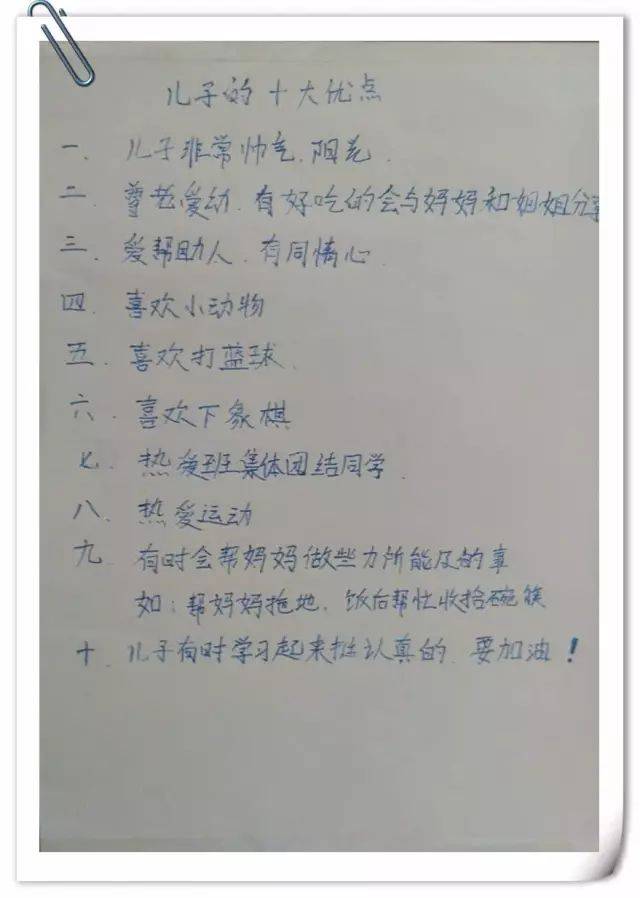 儿子的十大优点
一、儿子非常帅气、阳光.
二、尊老爱动.有好吃的会与妈妈和姐姐分享
三、爱帮助人.有同情心.
四、喜欢小动物
五、喜欢打蓝球.
六、喜欢下象棋
七、热爱班集体团结同学.
八、热爱运动
九、有时会帮妈妈做些力所能及的事
如:帮妈妈拖地、饭后帮忙收拾碗筷
十、儿子有时学习起来挺认真的.要加油!